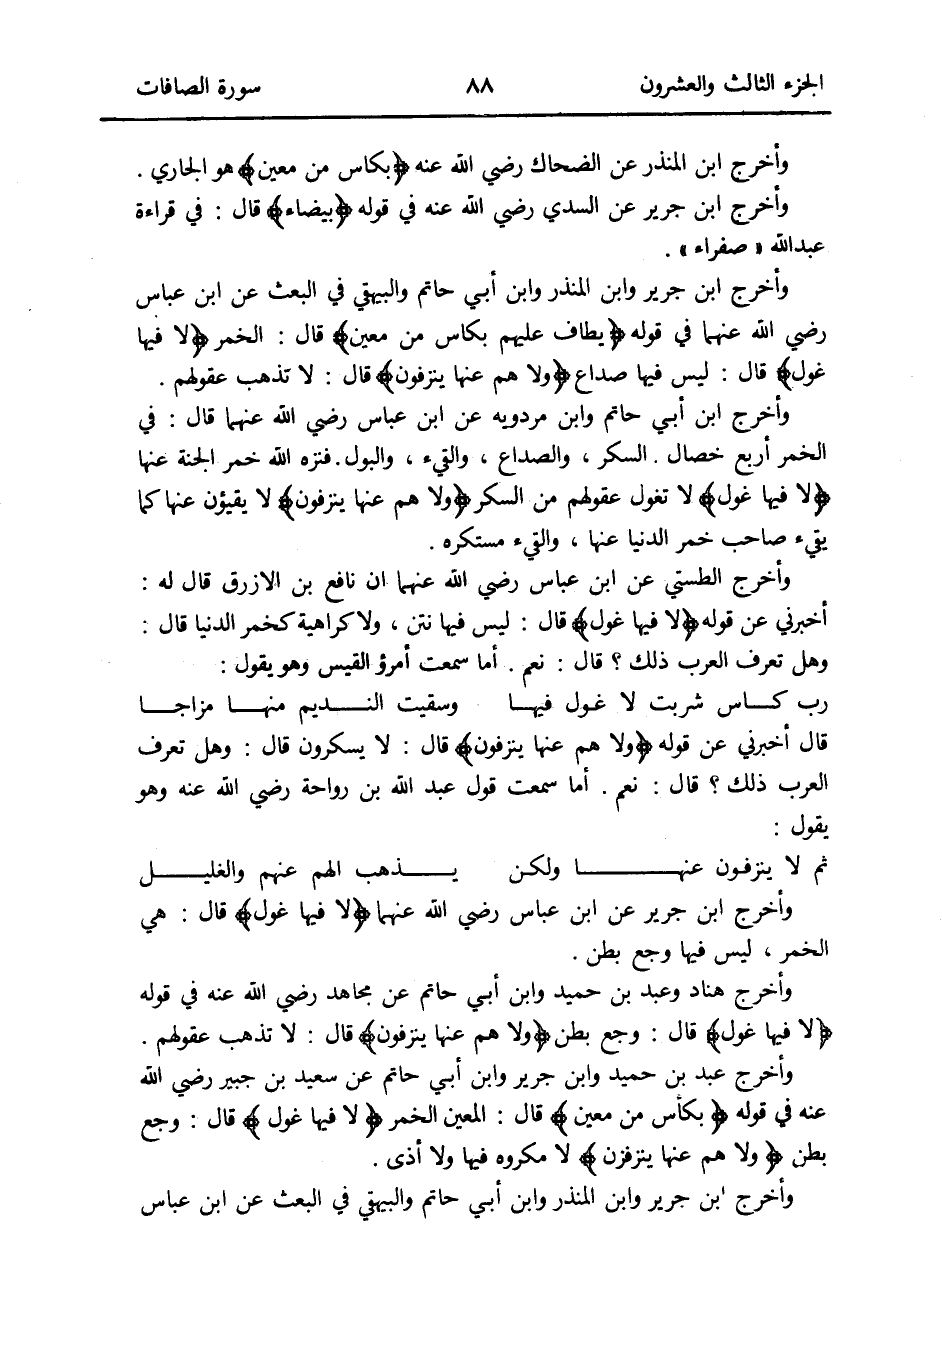 الجزء الثالث والعشرون ٨٨ سورة الصافات
وأخرج ابن المنذر عن الضحاك رضي الله عنه ﴿بكاس من معين﴾ هو الجاري .
وأخرج ابن جرير عن السدي رضي الله عنه في قوله ﴿بيضاء﴾ قال : في قراءة
عبدالله « صفراء » .
وأخرج ابن جرير وابن المنذر وابن أبي حاتم والبيهقي في البعث عن ابن عباس
رضي الله عنهما في قوله ﴿يطاف عليهم بكاس من معين﴾ قال : الخمر ﴿لا فيها
غول﴾ قال : ليس فيها صداع ﴿ولا هم عنها ينزفون﴾ قال : لا تذهب عقولهم .
وأخرج ابن أبي حاتم وابن مردويه عن ابن عباس رضي الله عنهما قال : في
الخمر أربع خصال . السكر ، والصداع ، والقيء ، والبول . فنزه الله خمر الجنة عنها
﴿لا فيها غول﴾ لا تغول عقولهم من السكر ﴿ولا هم عنها ينزفون﴾ لا يقيؤن عنها كما
يقيء صاحب خمر الدنيا عنها ، والقيء مستكره .
وأخرج الطستي عن ابن عباس رضي الله عنهما ان نافع بن الازرق قال له :
أخبرني عن قوله ﴿لا فيها غول﴾ قال : ليس فيها نتن ، ولا كراهية كخمر الدنيا قال :
وهل تعرف العرب ذلك ؟ قال : نعم . أما سمعت أمرؤ القيس وهو يقول :
رب كــاس شربت لا غـول فيهـا وسقيت النــديم منهــا مزاجــا
قال أخبرني عن قوله ﴿ولا هم عنها ينزفون﴾ قال : لا يسكرون قال : وهل تعرف
العرب ذلك ؟ قال : نعم . أما سمعت قول عبد الله بن رواحة رضي الله عنه وهو
يقول :
ثم لا ينزفـون عنهـــــا ولكـن يــــذهب الهم عنهم والغليــــل
وأخرج ابن جرير عن ابن عباس رضي الله عنهما ﴿لا فيها غول﴾ قال : هي
الخمر ، ليس فيها وجع بطن .
وأخرج هناد وعبد بن حميد وابن أبي حاتم عن مجاهد رضي الله عنه في قوله
﴿لا فيها غول﴾ قال : وجع بطن ﴿ولا هم عنها ينزفون﴾ قال : لا تذهب عقولهم .
وأخرج عبد بن حميد وابن جرير وابن أبي حاتم عن سعيد بن جبير رضي الله
عنه في قوله ﴿ بكأس من معين ﴾ قال : المعين الخمر ﴿ لا فيها غول ﴾ قال : وجع
بطن ﴿ ولا هم عنها ينزفزن ﴾ لا مكروه فيها ولا أذى .
وأخرج ابن جرير وابن المنذر وابن أبي حاتم والبيهقي في البعث عن ابن عباس